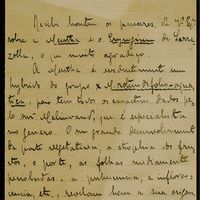 Recebi hontem os pareceres de V. Ex.
sobre a Mentha e o Eryngium de Larre
zolha, o que muito agradeço.
A Mentha é evidentemente um
hybrido do grupo x M. rotundifolio-aqua
tica, pois tem todos os caracteres dados pe
lo snr. Malinvaud, que é especialista
no genero. O seu grande desenvolvimento
da parte vegetativa, a atrophia dos fru
ctos, o porte, as folhas nitidamente
pecioladas, a pubescencia, a inflores-
cencia, etc., revelam bem a sua origem